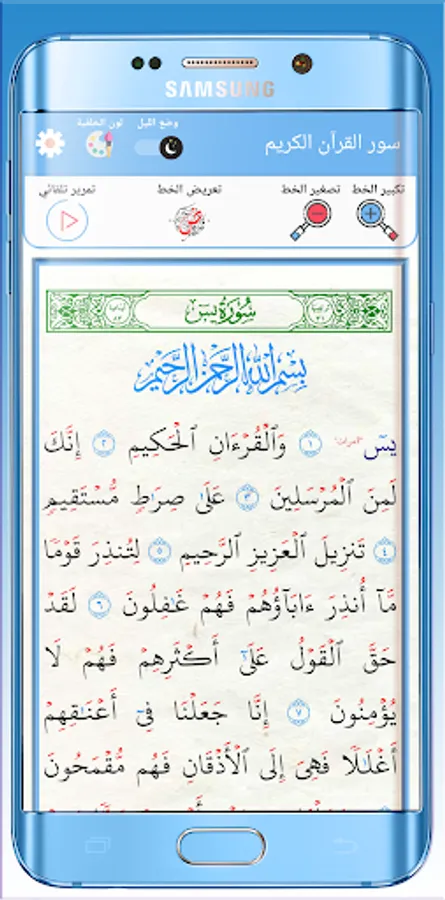 SAMSUNG
سور القرآن الكريم
وضع الليل
لون الخلفية
تكبير الخط
تصغير الخط
تعريض الخط
تمرير تلقائي
سُورَةُ يسٓ
بِسْمِ اللَّهِ الرَّحْمَٰنِ الرَّحِيمِ
يسٓ ١ وَٱلْقُرْءَانِ ٱلْحَكِيمِ ٢ إِنَّكَ
لَمِنَ ٱلْمُرْسَلِينَ ٣ عَلَىٰ صِرَٰطٍ مُّسْتَقِيمٍ
٤ تَنزِيلَ ٱلْعَزِيزِ ٱلرَّحِيمِ ٥ لِتُنذِرَ قَوْمًا
مَّآ أُنذِرَ ءَابَآؤُهُمْ فَهُمْ غَٰفِلُونَ ٦ لَقَدْ
حَقَّ ٱلْقَوْلُ عَلَىٰٓ أَكْثَرِهِمْ فَهُمْ لَا
يُؤْمِنُونَ ٧ إِنَّا جَعَلْنَا فِىٓ أَعْنَٰقِهِمْ
أَغْلَٰلًا فَهِىَ إِلَى ٱلْأَذْقَانِ فَهُم مُّقْمَحُونَ